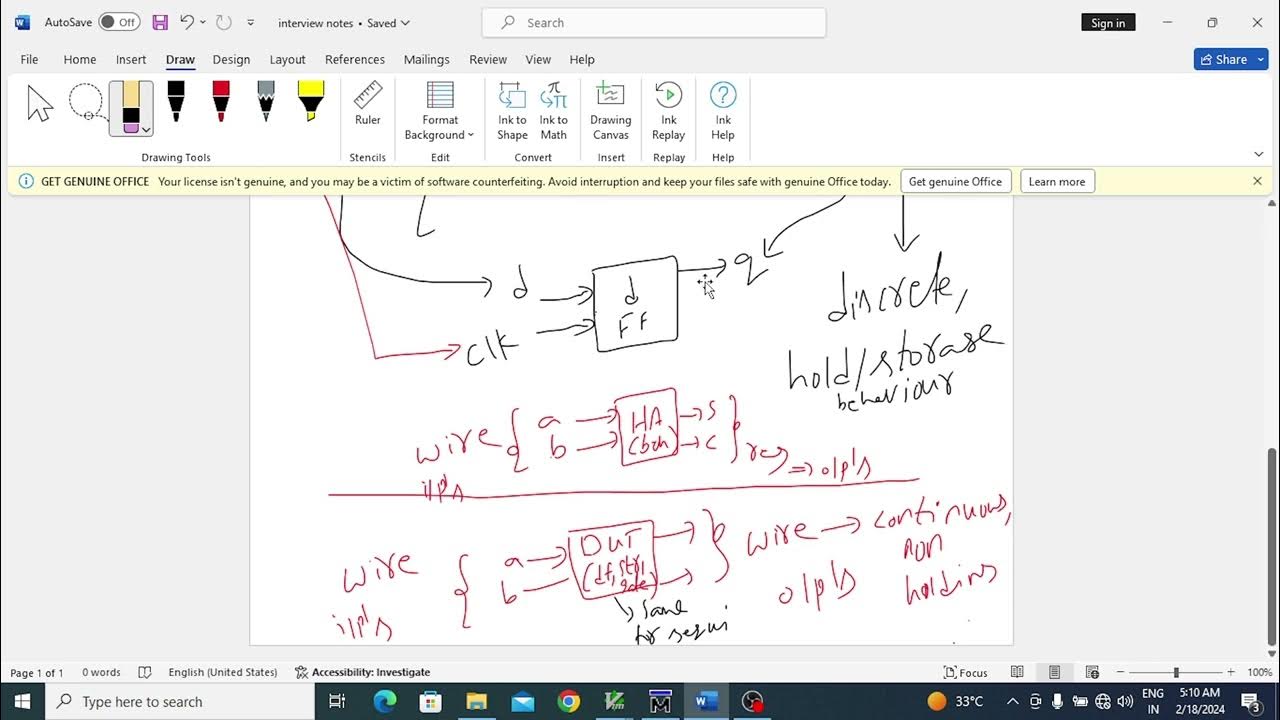 AutoSave Off interview notes • Saved Search Sign in
File Home Insert Draw Design Layout References Mailings Review View Help Share
Ruler Format Background Ink to Shape Ink to Math Drawing Canvas Ink Replay Ink Help
Drawing Tools Stencils Edit Convert Insert Replay Help
GET GENUINE OFFICE Your license isn't genuine, and you may be a victim of software counterfeiting. Avoid interruption and keep your files safe with genuine Office today. Get genuine Office Learn more
d d FF q
clk
discrete,
hold/storage
behaviour
wire { a HA s } reg => o/p's
i/p's b (beh) c
wire { a DUT } wire → continuous,
i/p's b (df, str, o/p's non
holding
same
for sequi
Page 1 of 1 0 words English (United States) Accessibility: Investigate Focus 100%
Type here to search 33°C ENG IN 5:10 AM 2/18/2024 3